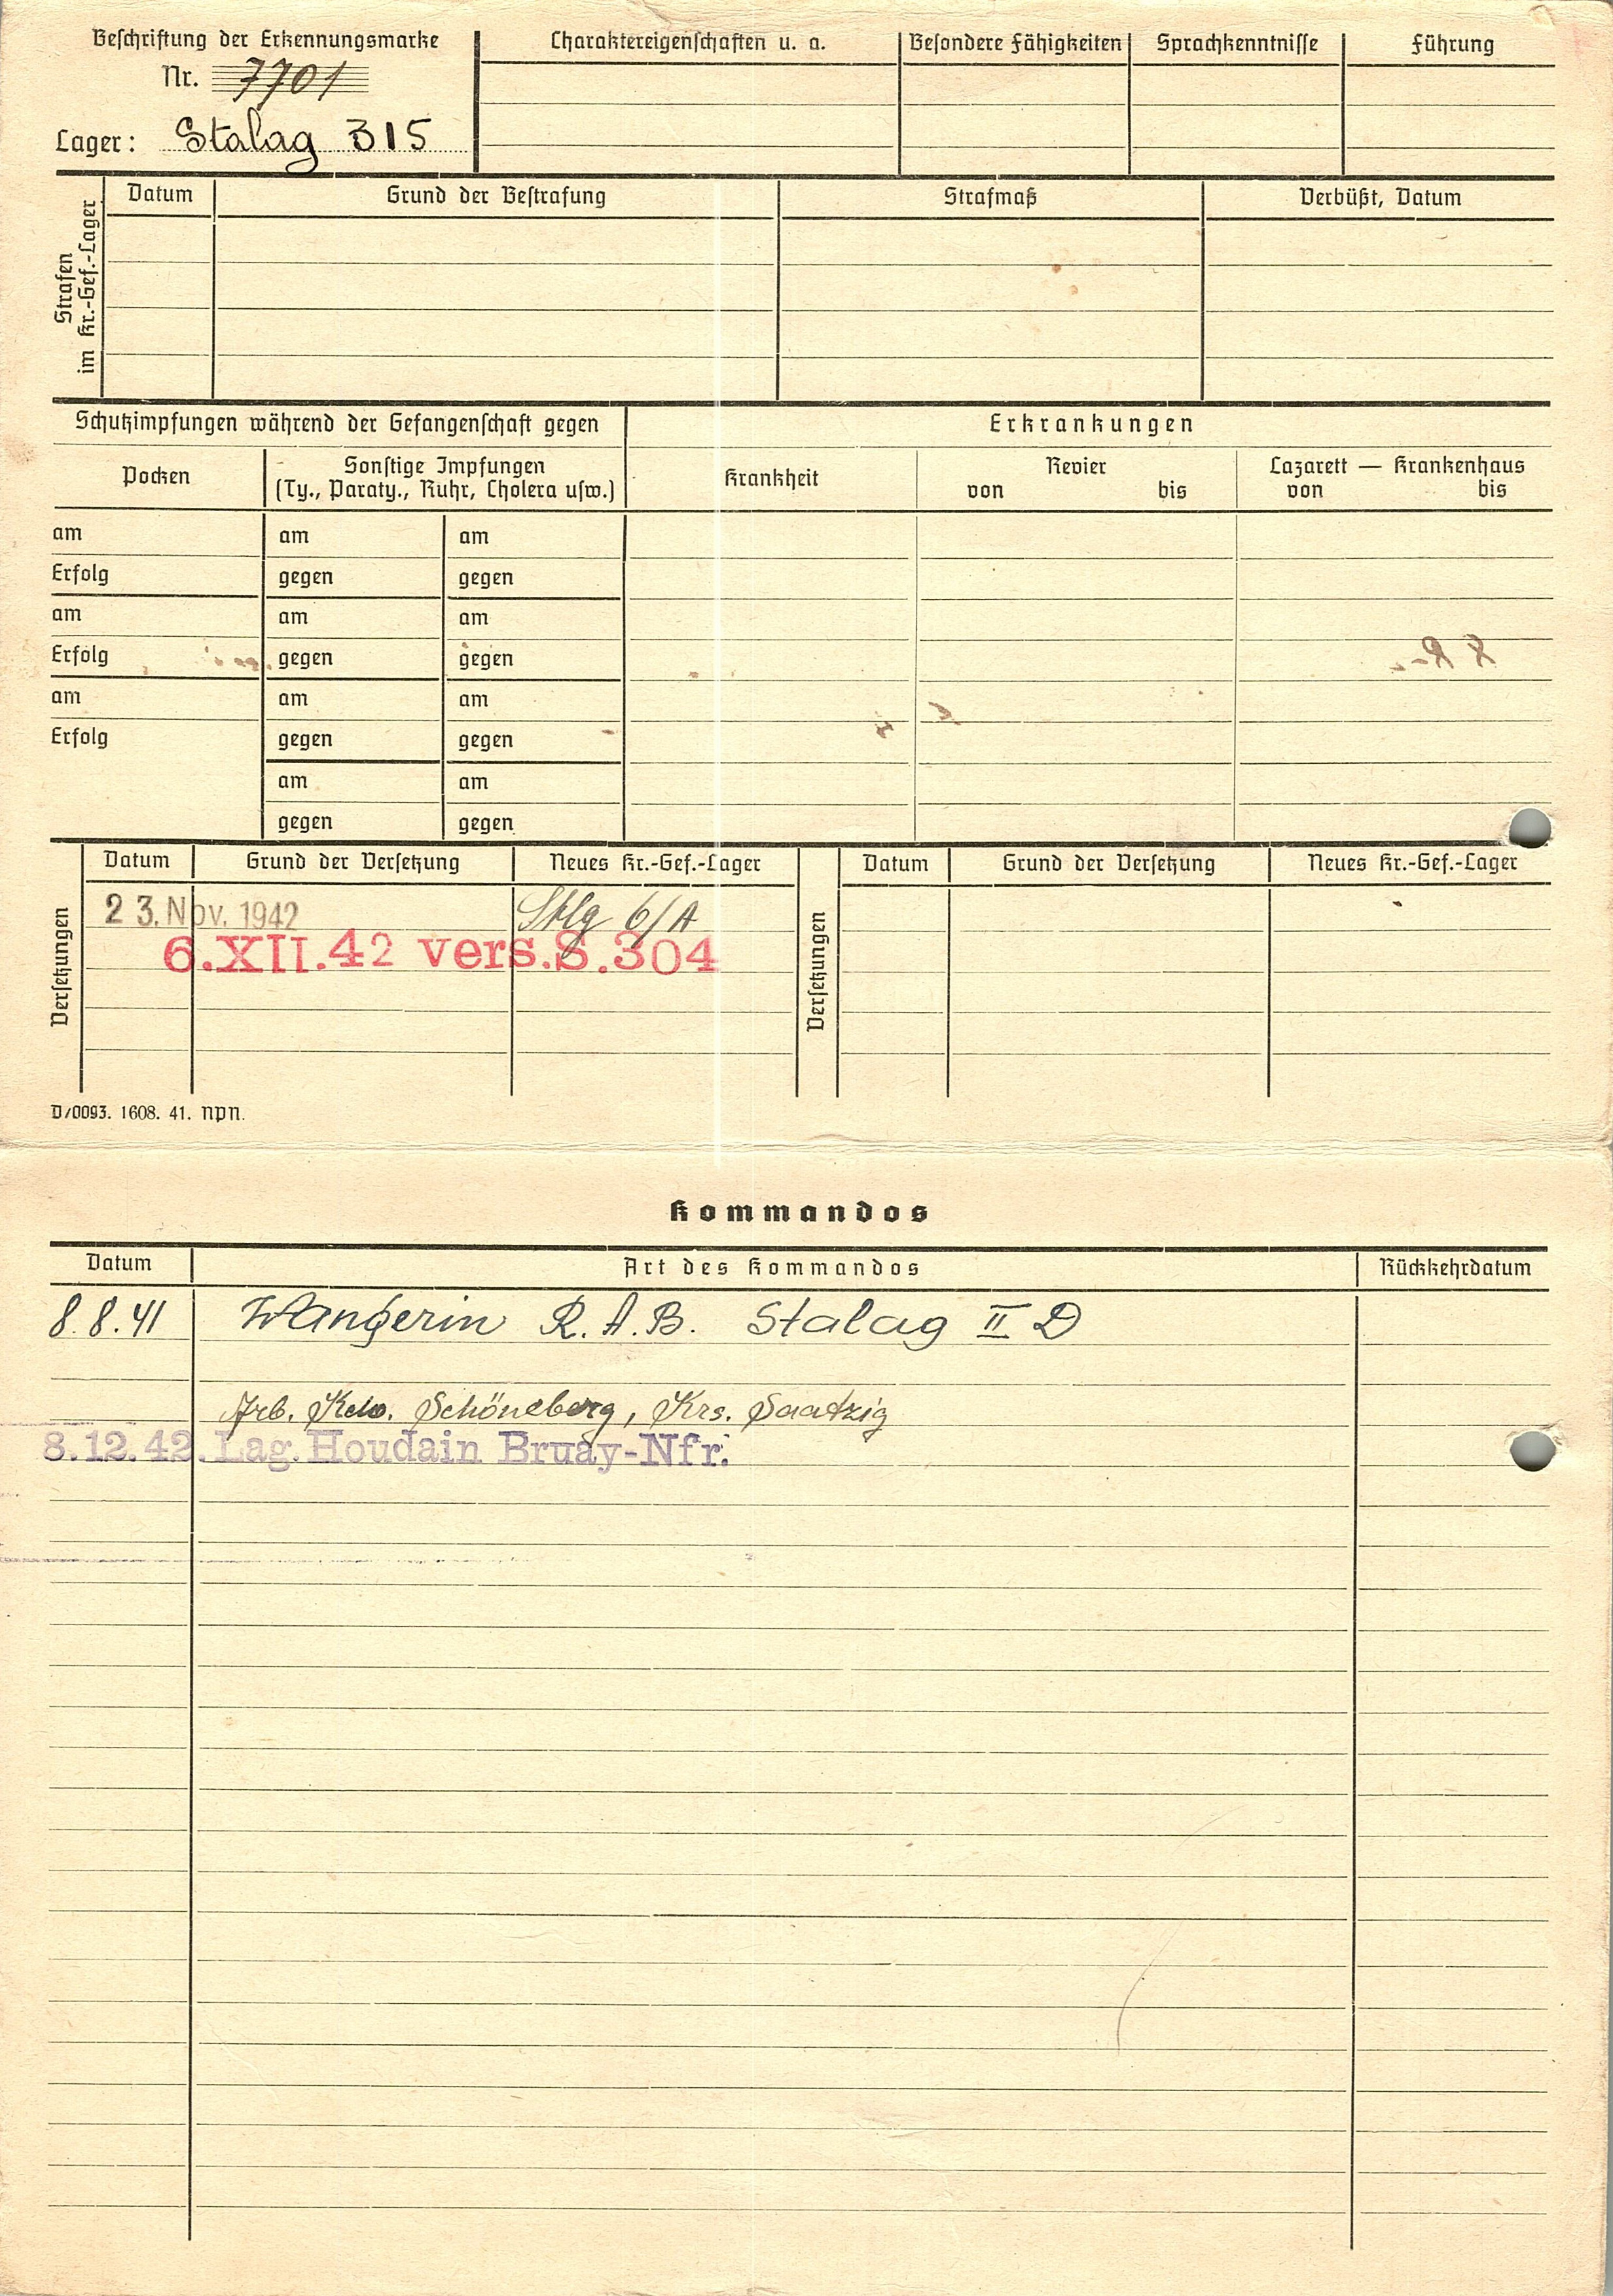 Beschriftung der Erkennungsmarke
Nr. 7701
Lager: Stalag 315
Charaktereigenschaften u. a.
Besondere Fähigkeiten
Sprachkenntnisse
Führung
Strafen im Kr.-Gef.-Lager
Datum
Grund der Bestrafung
Strafmaß
Verbüßt, Datum
Schutzimpfungen während der Gefangenschaft gegen
Erkrankungen
Pocken
Sonstige Impfungen
(Ty., Paraty., Ruhr, Cholera usw.)
Krankheit
Revier
von bis
Lazarett — Krankenhaus
von bis
am am am
Erfolg gegen gegen
am am am
Erfolg gegen gegen
am am am
Erfolg gegen gegen
am am
gegen gegen
Versetzungen
Datum Grund der Versetzung Neues Kr.-Gef.-Lager
23. Nov. 1942 Stlg 6/A
6.XII.42 vers.S.304
Versetzungen
Datum Grund der Versetzung Neues Kr.-Gef.-Lager
D/0093. 1608. 41. npn.
Kommandos
Datum Art des Kommandos Rückkehrdatum
8.8.41 Wangerin R.A.B. Stalag II D
Arb. Kdo. Schöneberg, Krs. Saatzig
8.12.42. Lag. Houdain Bruay-Nfr.